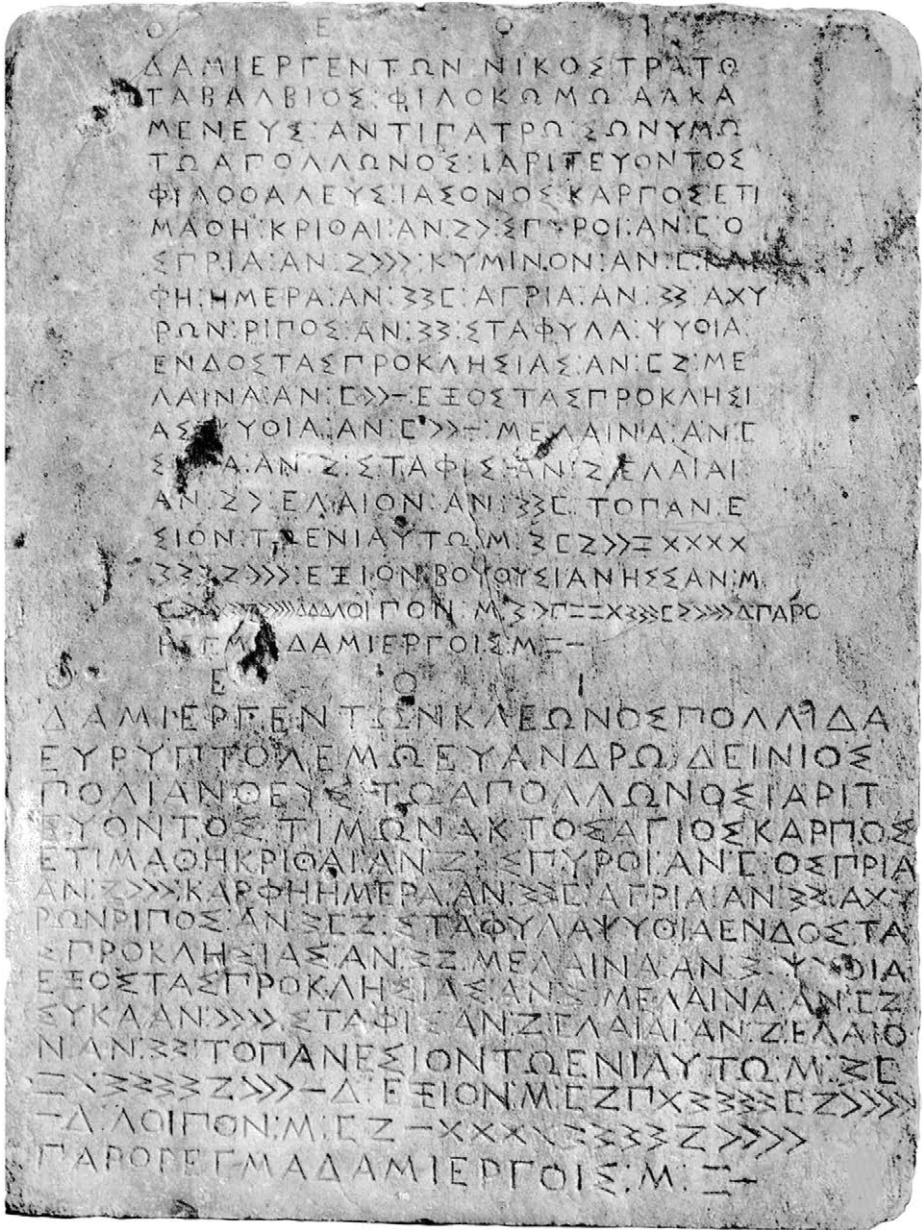 Θ Ε Ο Ι
ΔΑΜΙΕΡΓΕΝΤΩΝ ΝΙΚΟΣΤΡΑΤΩ
ΤΑΒΑΛΒΙΟΣ : ΦΙΛΟΚΩΜΩ ΑΛΚΑ
ΜΕΝΕΥΣ : ΑΝΤΙΠΑΤΡΩ : ΣΩΝΥΜΩ
ΤΩ ΑΠΟΛΛΩΝΟΣ : ΙΑΡΙΤΕΥΟΝΤΟΣ
ΦΙΛΟΘΑΛΕΥΣ : ΙΑΣΟΝΟΣ : ΚΑΡΠΟΣ ΕΤΙ
ΜΑΘΗ : ΚΡΙΘΑΙ : ΑΝ : Ζ> : ΣΠΥΡΟΙ : ΑΝ : Ⲥ Ο
ΣΠΡΙΑ : ΑΝ : Ζ>>> : ΚΥΜΙΝΟΝ : ΑΝ : Ⲥ : ΚΑΡ
ΦΗ : ΗΜΕΡΑ : ΑΝ : ΣΣⲤ : ΑΓΡΙΑ : ΑΝ : ΣΣ ΑΧΥ
ΡΩΝ : ΡΙΠΟΣ : ΑΝ : ΣΣ : ΣΤΑΦΥΛΑ : ΨΥΘΙΑ
ΕΝΔΟΣ ΤΑΣ ΠΡΟΚΛΗΣΙΑΣ : ΑΝ : ⲤΖ : ΜΕ
ΛΑΙΝΑ : ΑΝ : Ⲥ>>– : ΕΞΟΣ ΤΑΣ ΠΡΟΚΛΗΣΙ
ΑΣ ΨΥΘΙΑ : ΑΝ : Ⲥ>>– : ΜΕΛΑΙΝΑ : ΑΝ Ⲥ
ΑΝ : Ζ : ΣΤΑΦΙΣ : ΑΝ : Ζ ΕΛΑΙΑΙ
ΑΝ : Ζ> : ΕΛΑΙΟΝ : ΑΝ : ΣΣⲤ : ΤΟ ΠΑΝ : Ε
ΣΙΟΝ : ΤΩ ΕΝΙΑΥΤΩ : Μ : ΣⲤΖ>>=ΧΧΧΧ
ΣΣΣΖ>>> : ΕΞΙΟΝ : ΒΟΥΘΥΣΙΑΝ ΗΣΣΑΝ : Μ
ΛΟΙΠΟΝ : Μ : ΠΑΡΟ
ΔΑΜΙΕΡΓΟΙΣ : Μ =–
Θ Ε Ο Ι
ΔΑΜΙΕΡΓΕΝΤΩΝ ΚΛΕΩΝΟΣ ΠΟΛΛΙΔΑ
ΕΥΡΥΠΤΟΛΕΜΩ ΕΥΑΝΔΡΩ ΔΕΙΝΙΟΣ
ΠΟΛΙΑΝΘΕΥΣ : ΤΩ ΑΠΟΛΛΩΝΟΣ ΙΑΡΙΤ
ΕΥΟΝΤΟΣ : ΤΙΜΩΝΑΚΤΟΣ ΑΓΙΟΣ ΚΑΡΠΟΣ
ΕΤΙΜΑΘΗ ΚΡΙΘΑΙ : ΑΝ : Ζ : ΣΠΥΡΟΙ : ΑΝ : Ⲥ : ΟΣΠΡΙΑ
ΑΝ : Ζ>>> : ΚΑΡΦΗ ΗΜΕΡΑ : ΑΝ : ΣΣⲤ : ΑΓΡΙΑ : ΑΝ : ΣΣ : ΑΧΥ
ΡΩΝ ΡΙΠΟΣ : ΑΝ : ΣⲤΖ : ΣΤΑΦΥΛΑ ΨΥΘΙΑ ΕΝΔΟΣ ΤΑ
Σ ΠΡΟΚΛΗΣΙΑΣ : ΑΝ : ΣΖ : ΜΕΛΑΙΝΑ : ΑΝ : Σ : ΨΥΘΙΑ
ΕΞΟΣ ΤΑΣ ΠΡΟΚΛΗΣΙΑΣ : ΑΝ : Σ : ΜΕΛΑΙΝΑ : ΑΝ : ⲤΖ
ΣΥΚΑ ΑΝ : >>>> : ΣΤΑΦΙΣ : ΑΝ : Ζ ΕΛΑΙΑΙ : ΑΝ : Ζ ΕΛΑΙΟ
Ν : ΑΝ : ΣΣ : ΤΟ ΠΑΝ ΕΣΙΟΝ ΤΩ ΕΝΙΑΥΤΩ : Μ : ΣⲤ
ΣΣΣΣΖ>>>–Δ : ΕΞΙΟΝ : Μ : ⲤΖΠΧΣΣΣΣⲤΖ>>>>
–Δ : ΛΟΙΠΟΝ : Μ : ⲤΖ–ΧΧΧΧΣΣΣΣΖ>>>>
ΠΑΡΟΡΕΓΜΑ ΔΑΜΙΕΡΓΟΙΣ : Μ : =–